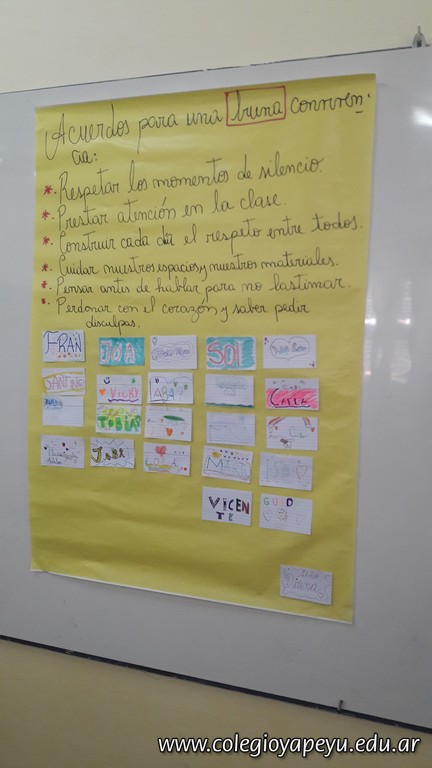 Acuerdos para una buena conviven-
cia:
*. Respetar los momentos de silencio.
*. Prestar atención en la clase.
*. Construir cada día el respeto entre todos.
*. Cuidar nuestros espacios y nuestros materiales.
*. Pensar antes de hablar para no lastimar.
*. Perdonar con el corazón y saber pedir
disculpas.
FRAN
SOL
SANTINO
VICKY
LARA
TOBÍAS
VICEN
TE
GUIDO
www.colegioyapeyu.edu.ar